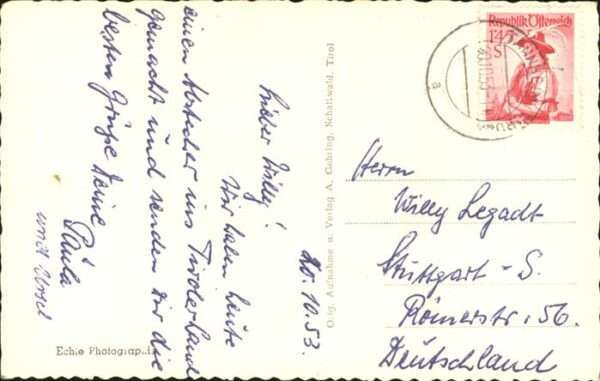 20.10.53.
Lieber Willy!
Wir haben heute
einen Abstecher ins Tirolerland
gemacht und senden Dir die
besten Grüße Deine
Paula
und Ursel
Echte Photographie
Orig. Aufnahme u. Verlag A. Gehring, Schattwald, Tirol
Republik Österreich
1'45
S
a
Herrn
Willy Legadt
Stuttgart - S.
Römerstr. 56.
Deutschland